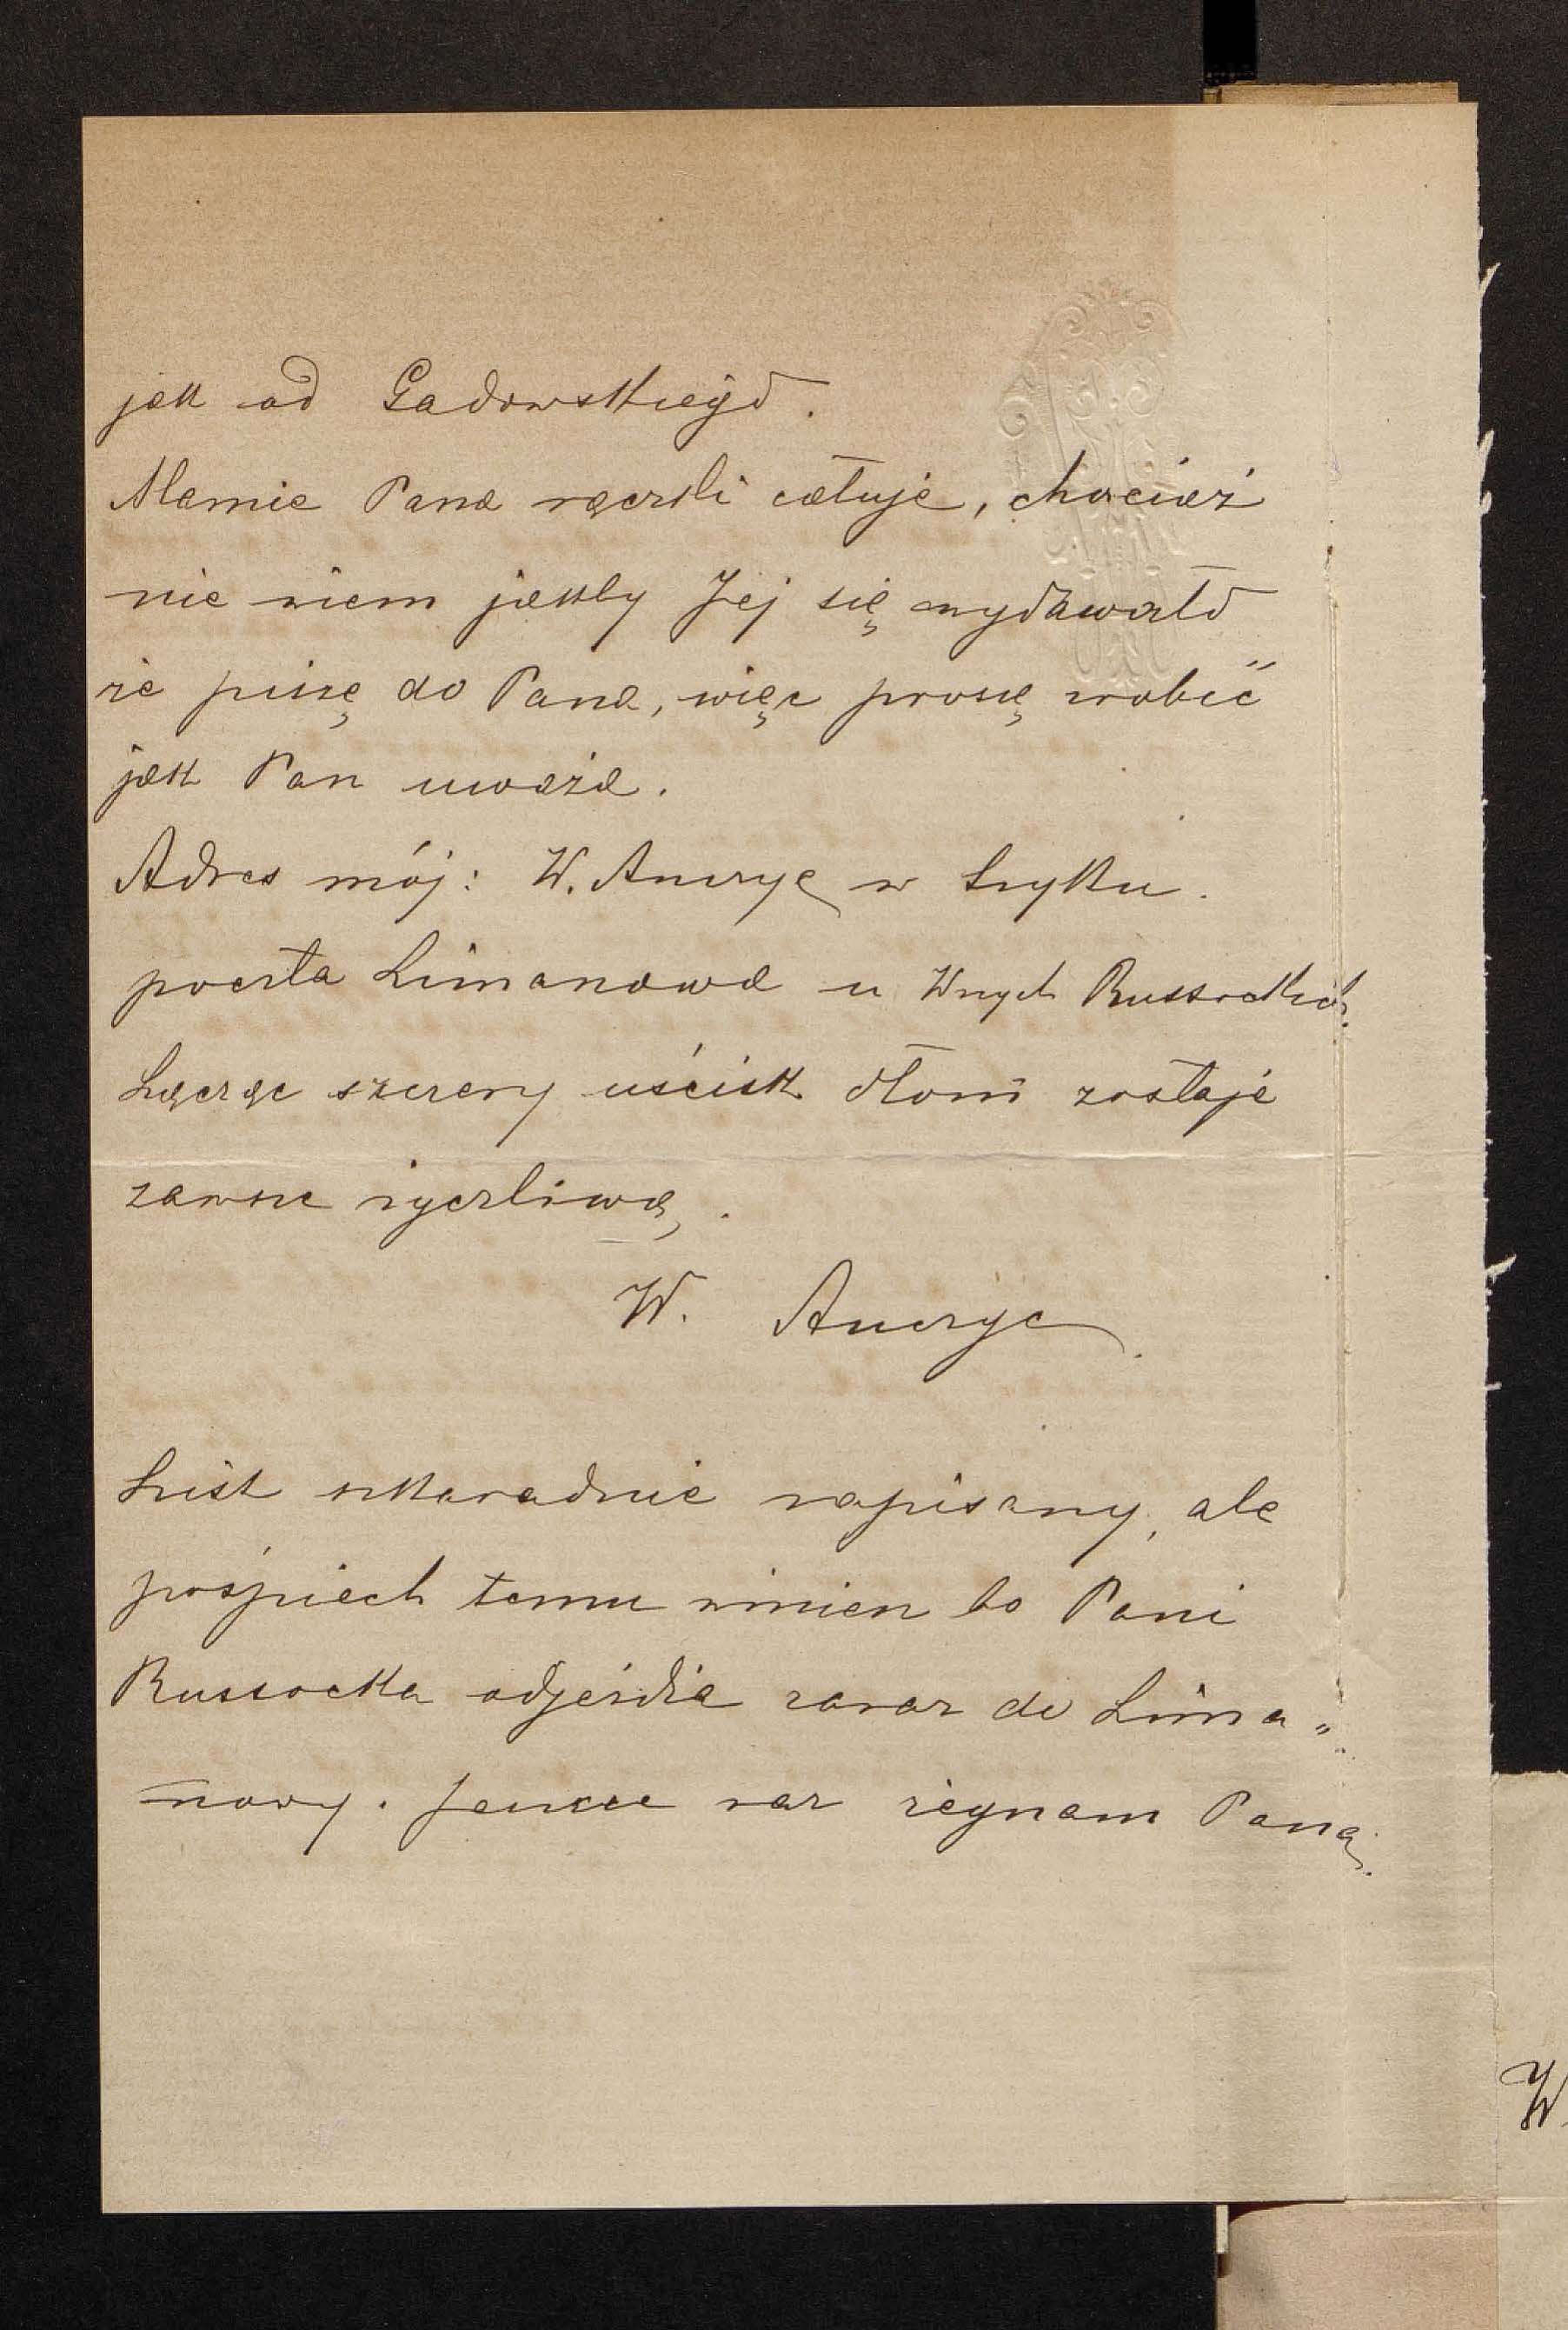 jak od Gadowskiego.
Mamie Pana rączki całuję, chociaż
nie wiem jakby Jej się wydawało
że piszę do Pana, więc proszę zrobić
jak Pan uważa.
Adres mój: W. Anczyc w Łyku.
poczta Limanowa u Wnych Russockich.
Łącząc szczery uścisk dłoni zostaję
zawsze życzliwą.
W. Anczyc.
List szkaradnie napisany, ale
pośpiech temu winien bo Pani
Russocka odjeżdża zaraz do Lima„
nowy. Jeszcze raz żegnam Pana.
W.